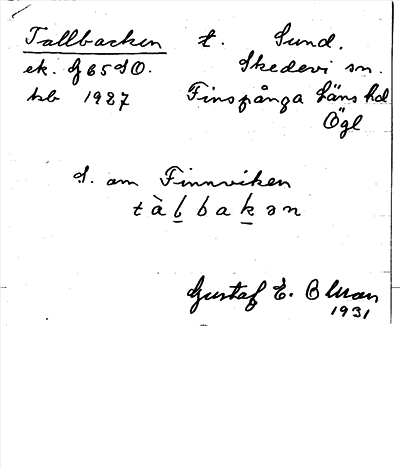 Tallbacken t. Sund.
ek. G 65 SO. Skedevi sn.
hsb 1927 Finspånga läns hd
Ögl
S. om Finnviken
tàlbakən
Gustaf E. Oluan
1931